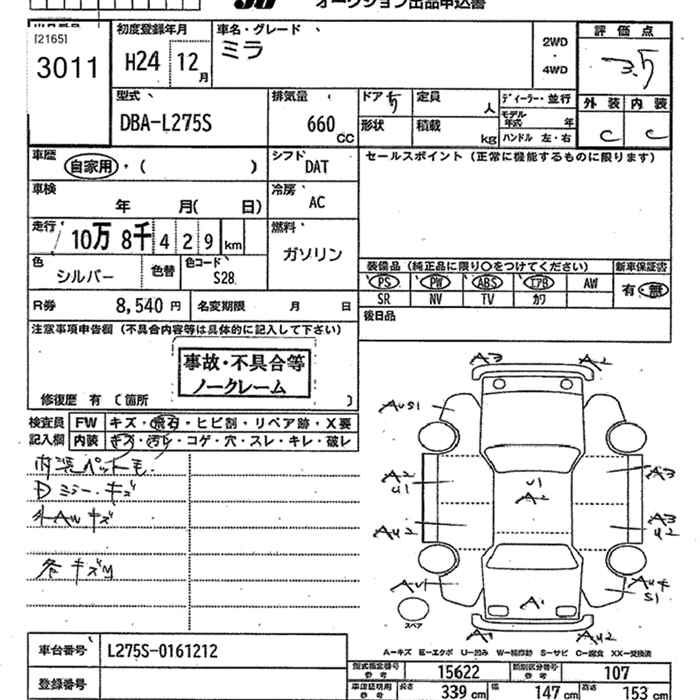 オークション出品申込書
[2165]
3011
初度登録年月
H24 12月
車名・グレード
ミラ
2WD
・
4WD
評価点
3.5
外装 内装
C C
型式
DBA-L275S
排気量
660 CC
ドア 5
定員 人
形状
積載 kg
ディーラー・並行
モデル年式 年
ハンドル 左・右
車歴
自家用・( )
シフト
DAT
セールスポイント (正常に機能するものに限ります)
車検
年 月( 日)
冷房
AC
走行
10万 8千 4 2 9 km
燃料
ガソリン
色
シルバー
色替
色コード
S28
装備品 (純正品に限り○をつけてください)
新車保証書
PS PW ABS エアB AW
SR NV TV カワ
有・無
R券 8,540 円
名変期限 月 日
後日品
注意事項申告欄 (不具合内容等は具体的に記入して下さい)
事故・不具合等
ノークレーム
修復歴 有 〔箇所 〕
検査員
記入欄
FW キズ・飛石・ヒビ割・リペア跡・X要
内装 キズ・汚レ・コゲ・穴・スレ・キレ・破レ
内装ペット毛
Dミラーキズ
外AWキズ
各キズM
A3 A2
AU51
A2
U1
U1
A2
A3
AU2
A3
U2
AU1
AU4
S1
A1
スペア
A1 AU2
A-キズ E-エクボ U-凹み W-補修跡 S-サビ C-腐食 XX-交換済
車台番号 L275S-0161212
登録番号
型式指定番号
参考
15622
類別区分番号
参考
107
車庫証明用
参考
長さ 339 cm
幅 147 cm
高さ 153 cm